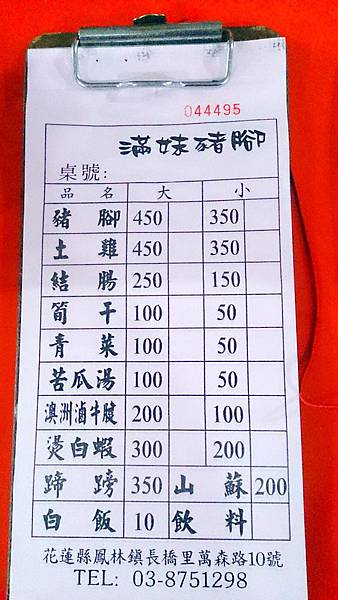 044495
滿妹豬腳
桌號:
品名 大 小
豬腳 450 350
土雞 450 350
結腸 250 150
筍干 100 50
青菜 100 50
苦瓜湯 100 50
澳洲滷牛腱 200 100
燙白蝦 300 200
蹄膀 350 山蘇 200
白飯 10 飲料
花蓮縣鳳林鎮長橋里萬森路10號
TEL: 03-8751298